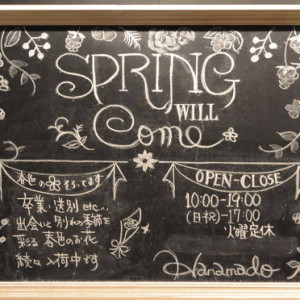 SPRING
WILL
Come
春色の花そろってます
卒業・送別 etc...
出会いと別れの季節を
彩る 春色のお花
続々入荷中です
OPEN-CLOSE
10:00-19:00
(日祝)-17:00
火曜定休
Hanamado